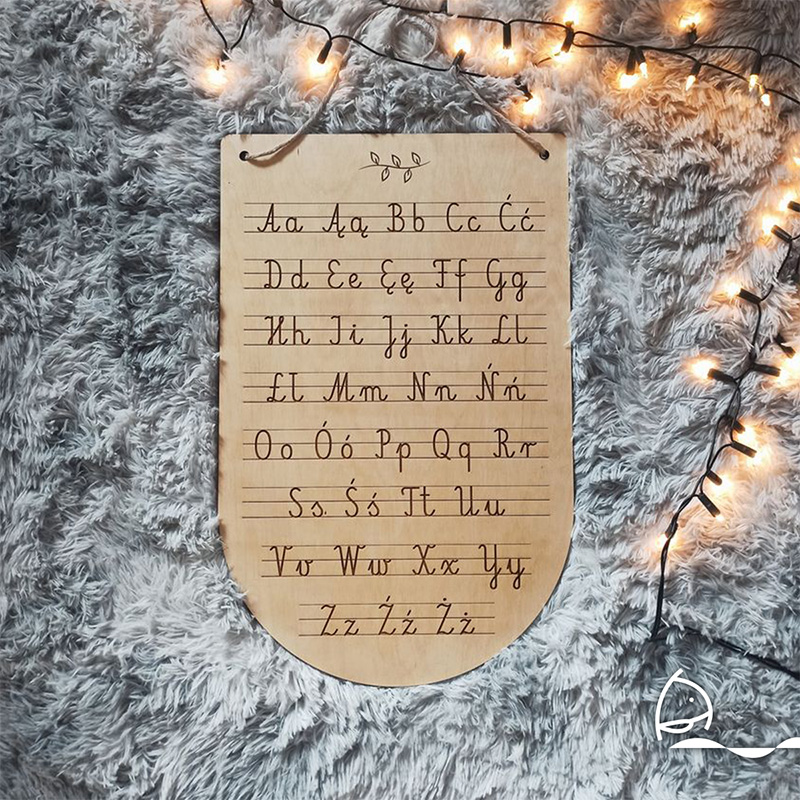 Aa Ąą Bb Cc Ćć
Dd Ee Ęę Ff Gg
Hh Ii Jj Kk Ll
Łł Mm Nn Ńń
Oo Óó Pp Qq Rr
Ss Śś Tt Uu
Vv Ww Xx Yy
Zz Źź Żż